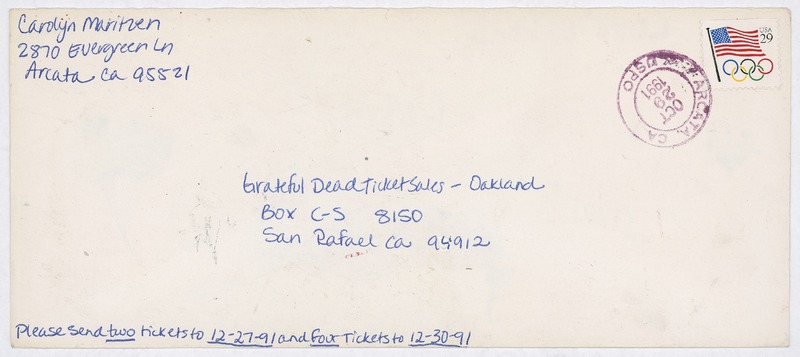 Carolijn Maritzen
2870 Evergreen Ln
Arcata Ca 95521
USA
29
ARCATA, CA
USPO
OCT
29
1991
Grateful Dead Ticket Sales - Oakland
BOX C-S 8150
San Rafael Ca 94912
Please send two tickets to 12-27-91 and four Tickets to 12-30-91